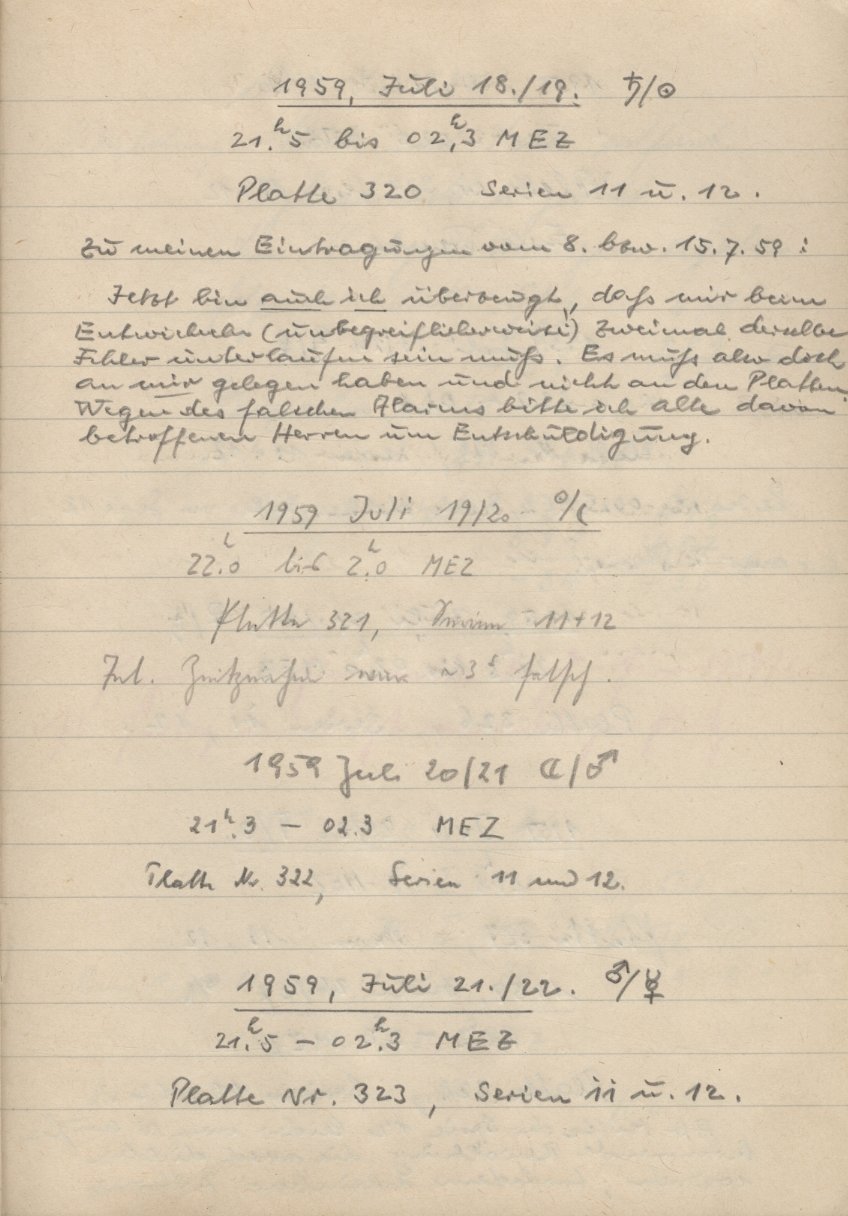 1959, Juli 18./19. ♄/☉
21.ʰ5 bis 02.ʰ3 MEZ
Platte 320 Serien 11 u. 12.
Zu meinen Eintragungen vom 8. bzw. 15.7.59:
Jetzt bin auch ich überzeugt, daß mir beim
Entwickeln (unbegreiflicherweise!) zweimal derselbe
Fehler unterlaufen sein muß. Es muß also doch
an mir gelegen haben und nicht an den Platten.
Wegen des falschen Alarms bitte ich alle davon
betroffenen Herren um Entschuldigung.
1959 Juli 19/20 ☉/☾
22.ʰ0 bis 2.ʰ0 MEZ
Platte 321, Serien 11+12
Int. Zeitzeichen war ~3ˢ falsch.
1959 Juli 20/21 ☾/♂
21ʰ.3 – 02.3 MEZ
Platte Nr. 322, Serien 11 und 12.
1959, Juli 21./22. ♂/☿
21.ʰ5 – 02.ʰ3 MEZ
Platte Nr. 323, Serien 11 u. 12.